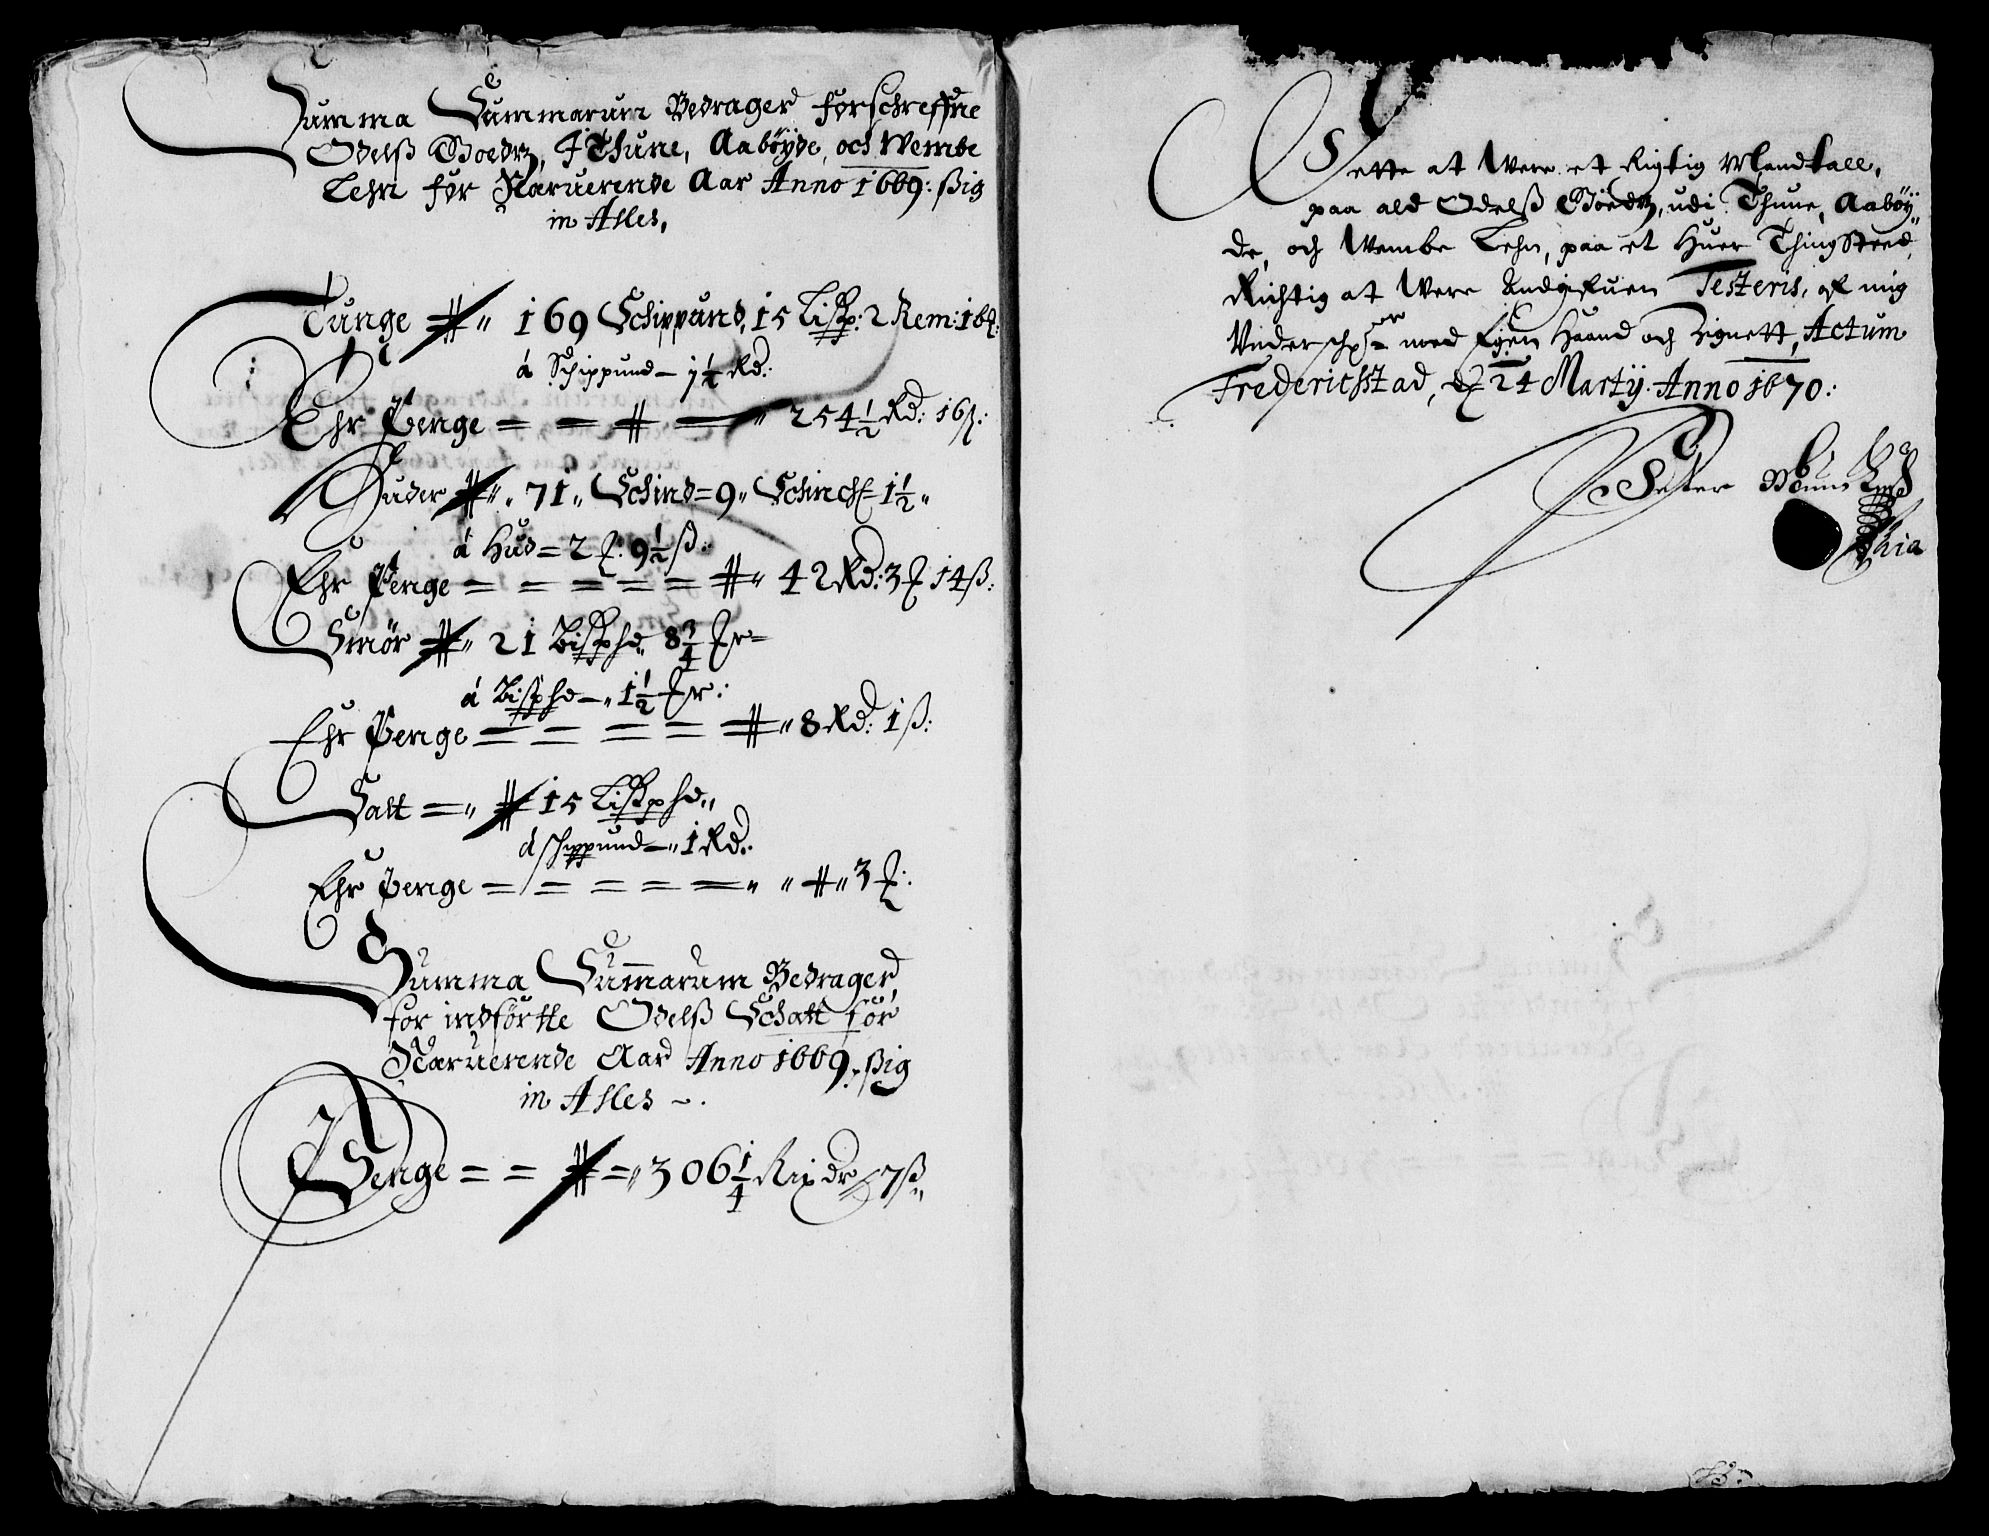 Summa Summarum Bedrager forschreffne
Odelß Goedz, J Thune, Aabøyde, och Wembe
Lehn for Næruerende Aar Anno 1669: ßig
in Alles,
Tunge 169 Schippund, 15 Lisp: 2 Rem: 18
á Schippund – 1½ Rd:
Ehr Penge = = = 254½ Rd: 16 ß:
Huder 71 Schind = 9 Schinch 1½
á Hud = 2 ƒ: 9½ ß:
Ehr Penge = = = = = 42 Rd: 3 ƒ 14 ß:
Smør 21 Bispd 8¾ ƒr =
á Bispd – 1½ ƒr:
Ehr Penge = = = = 8 Rd: 1 ß:
Salt = 15 Lispd
á schippund – 1 Rd:
Ehr Penge = = = = = 3 ƒ:
Summa Summarum Bedrager,
for indførtte Odelß Schatt för
Næruerende Aar Anno 1669, ßig
in Alles –.
Penge = = = 306¼ Rix dr 7 ß
Dette at Were et Rigtig Mandtall,
paa ald Odelß Goedz, udi Thune, Aabøy
de, och Wembe Lehn, paa et Huer Thingsteed,
Richtig at Were Andgifuen Testeris, af mig
Vnderschr med Egen Haand och Zignett, Actum
Frederichstad, d 24 Marty. Anno 1670:
Peter